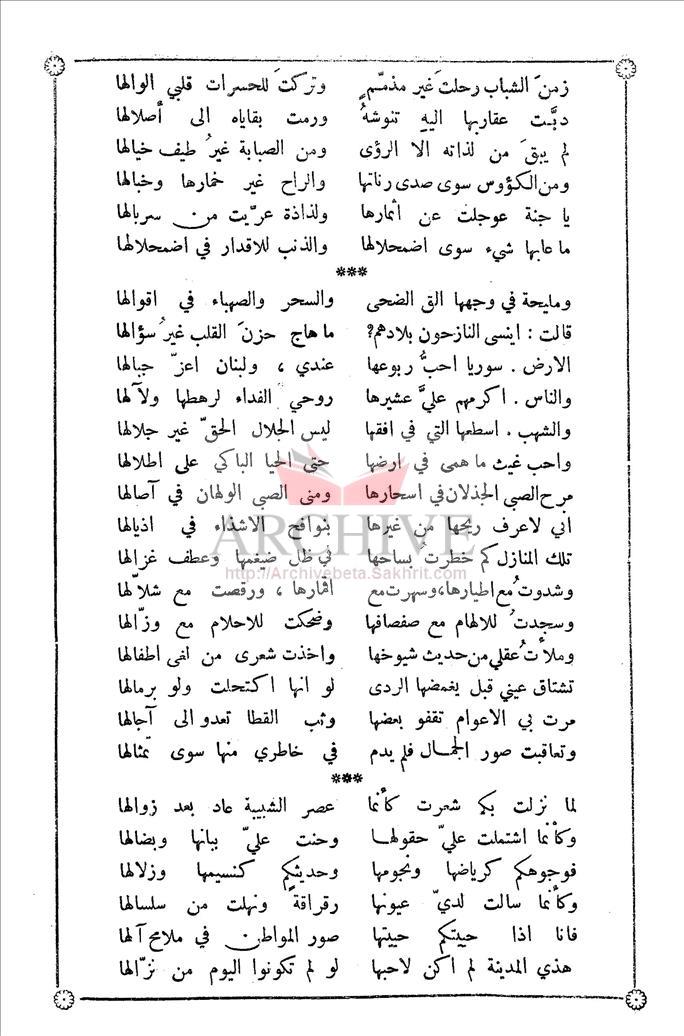 زمنَ الشباب رحلتَ غير مذمّمٍ وتركتَ للحسرات قلبي الوالها
دبَّت عقاربها اليهِ تنوشهُ ورمت بقاياه الى أصلالها
لم يبقَ من لذاته الا الرؤى ومن الصبابة غيرُ طيف خيالها
ومن الكؤوس سوى صدى رناتها والراح غير خمارها وخبالها
يا جنة عوجلت عن اثمارها ولذاذة عرّيت من سربالها
ما عابها شيء سوى اضمحلالها والذنب للاقدار في اضمحلالها
***
ومليحة في وجهها الق الضحى والسحر والصهباء في اقوالها
قالت : اينسى النازحون بلادهم? ما هاج حزنَ القلب غيرُ سؤالها
الارض . سوريا احبُّ ربوعها عندي ، ولبنان اعزّ جبالها
والناس . اكرمهم عليَّ عشيرها روحي الفداء لرهطها ولآلها
والشهب . اسطعها التي في افقها ليس الجلال الحقّ غير جلالها
واحب غيث ما همى في ارضها حتى الحيا الباكي على اطلالها
مرح الصبي الجذلان في اسحارها ومنى الصبي الولهان في آصالها
اني لاعرف ريحها من غيرها بنوافح الاشذاء في اذيالها
تلك المنازل كم خطرتُ بساحها في ظل ضيغمها وعطف غزالها
وشدوتُ مع اطيارها، وسهرت مع اقمارها ، ورقصت مع شلالها
وسجدتُ للالهام مع صفصافها وضحكت للاحلام مع وزّالها
وملأتُ عقلي من حديث شيوخها واخذت شعري من لغى اطفالها
تشتاق عيني قبل يغمضها الردى لو انها اكتحلت ولو برمالها
مرت بي الاعوام تقفو بعضها وثب القطا تعدو الى آجالها
وتعاقبت صور الجمال فلم يدم في خاطري منها سوى تمثالها
***
لما نزلت بكم شعرت كأنما عصر الشبيبة عاد بعد زوالها
وكأنما اشتملت عليّ حقولها وحنت عليّ ببانها وبضالها
فوجوهكم كرياضها ونجومها وحديثكم كنسيمها وزلالها
وكأنما سالت لديّ عيونها رقراقةً ونهلت من سلسالها
فانا اذا حييتكم حييتها صور المواطن في ملامح آلها
هذي المدينة لم اكن لاحبها لو لم تكونوا اليوم من نزّالها
ARCHIVE
http://Archivebeta.Sakhrit.com